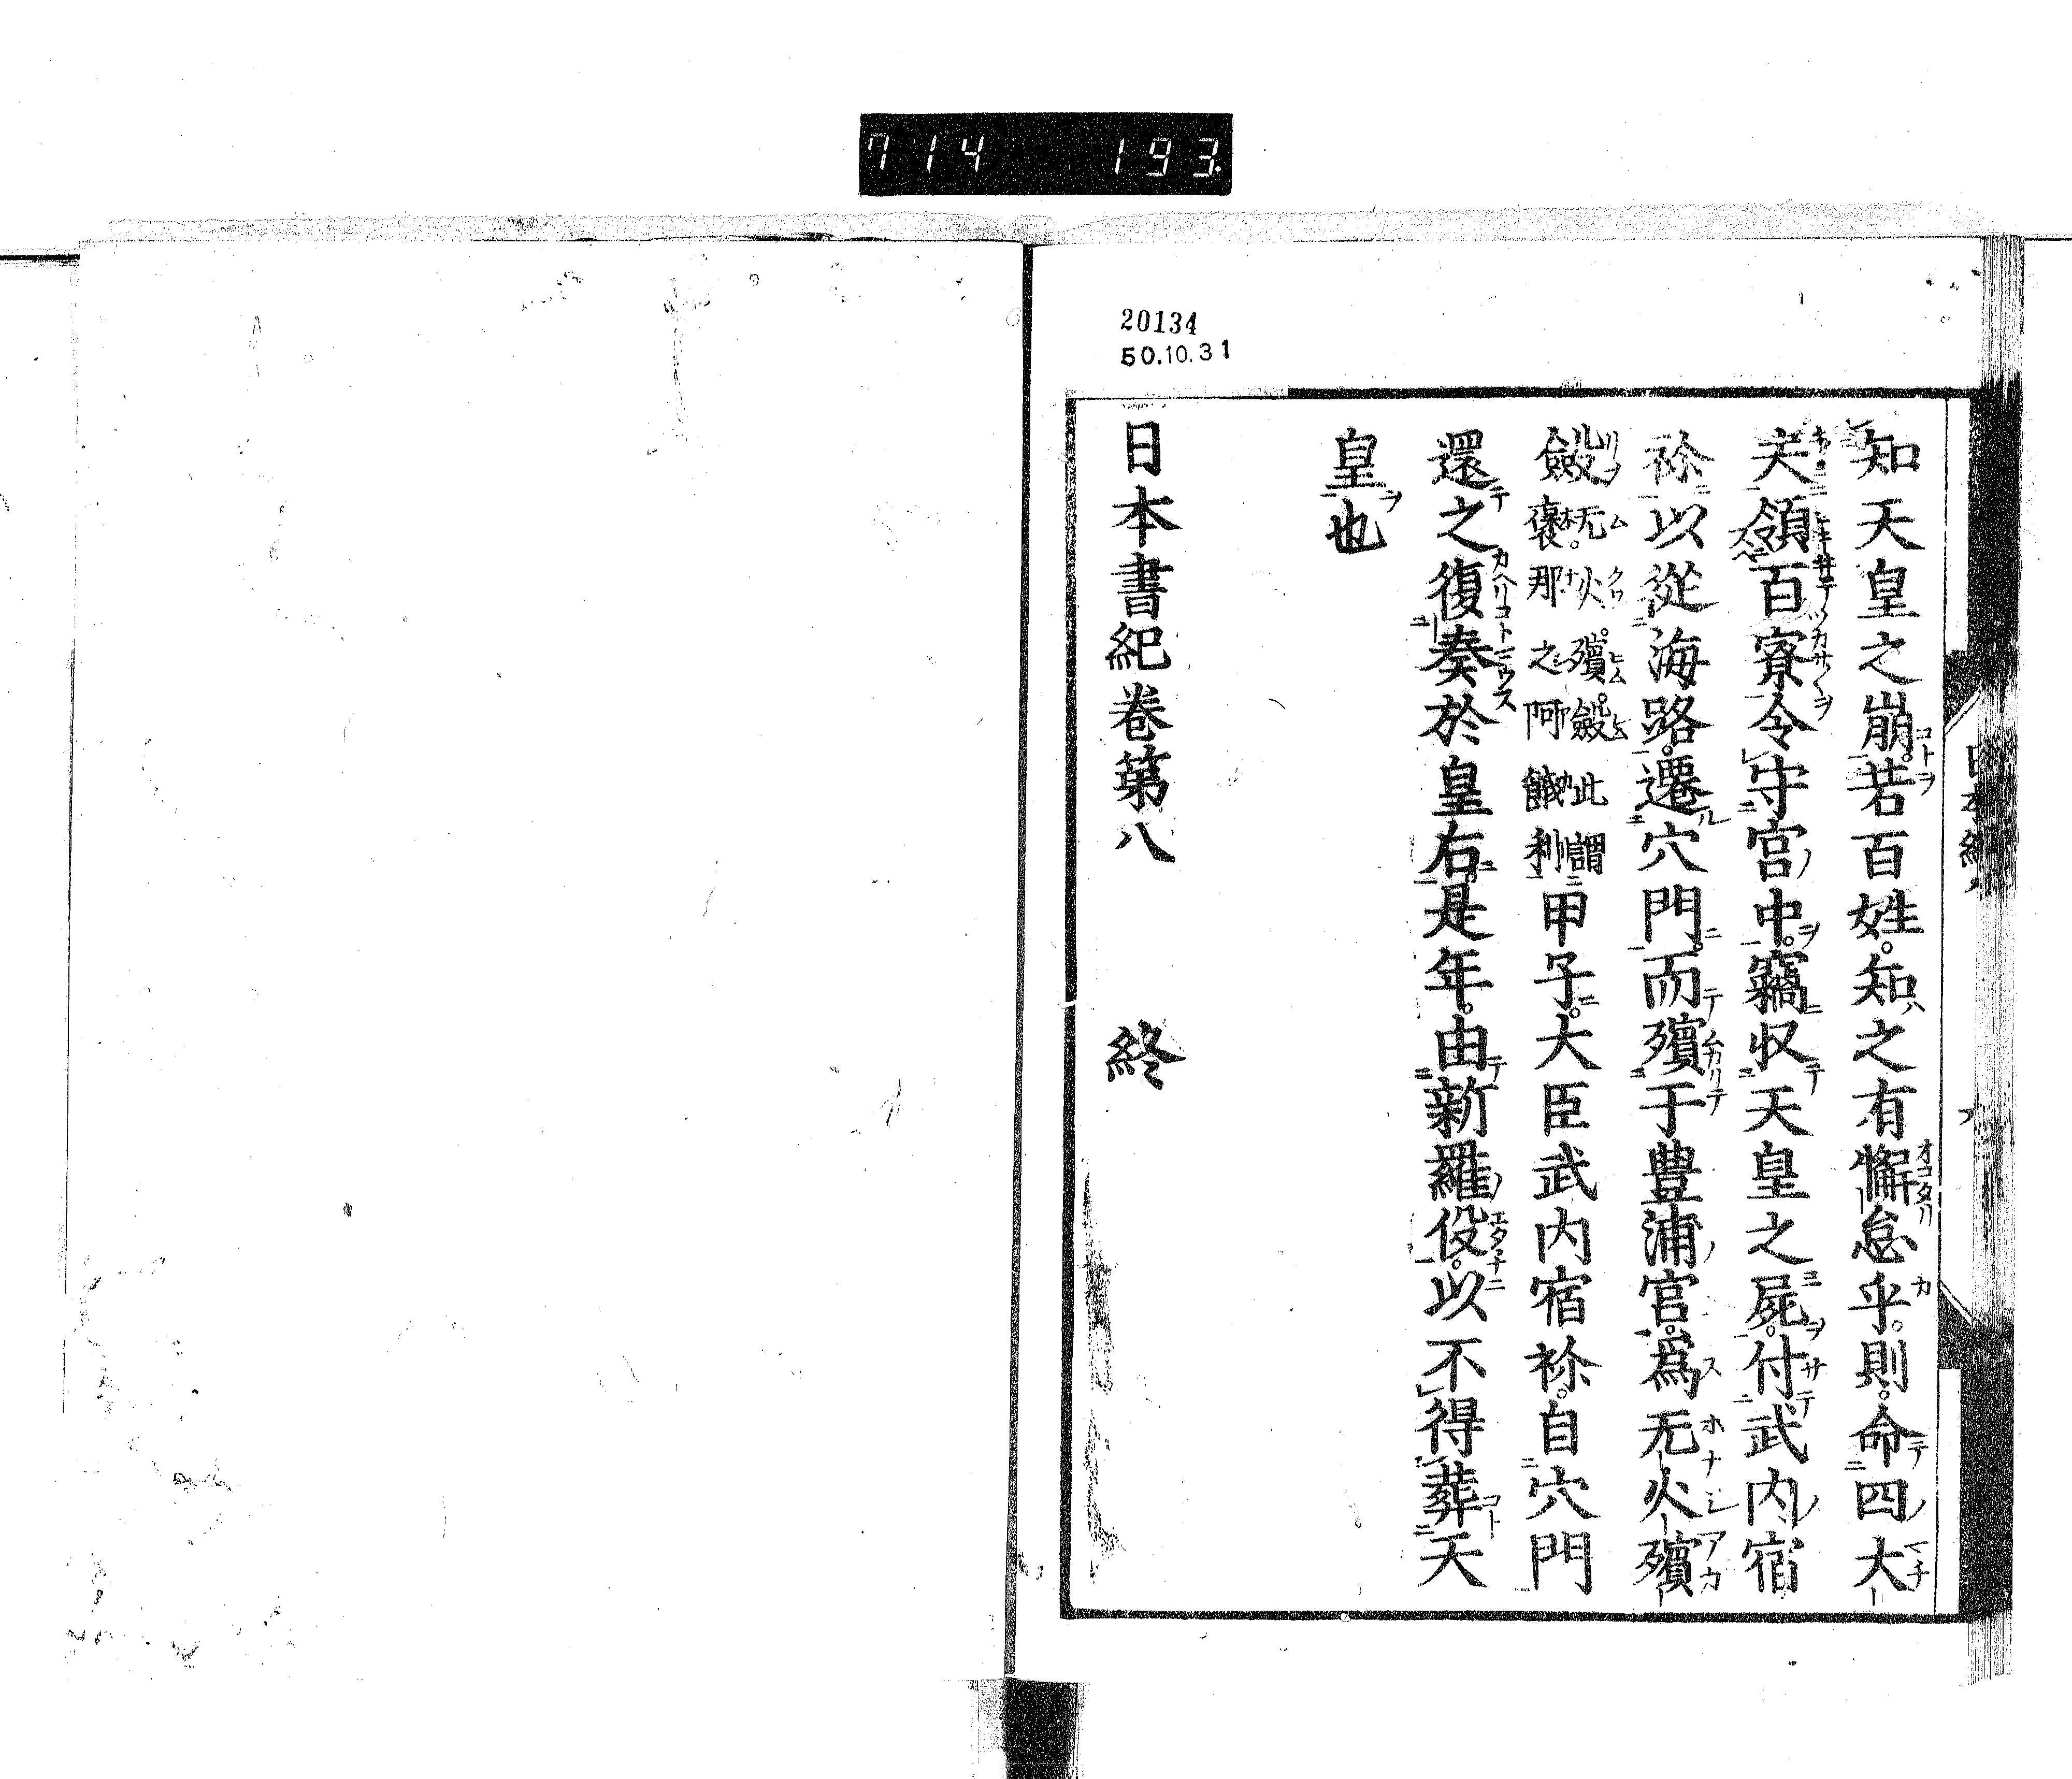 714 193
20134
50.10.31
知天皇之崩。若百姓。知之有懈怠乎。則。命四大
夫領百寮令守宮中。竊収天皇之屍。付武内宿
祢以從海路。遷穴門。而殯于豊浦宮。爲无火殯
斂无火。殯斂。此謂褒那之阿餓利甲子。大臣武内宿祢。自穴門
還之復奏於皇后是年。由新羅役。以不得葬天
皇也
日本書紀卷第八 終